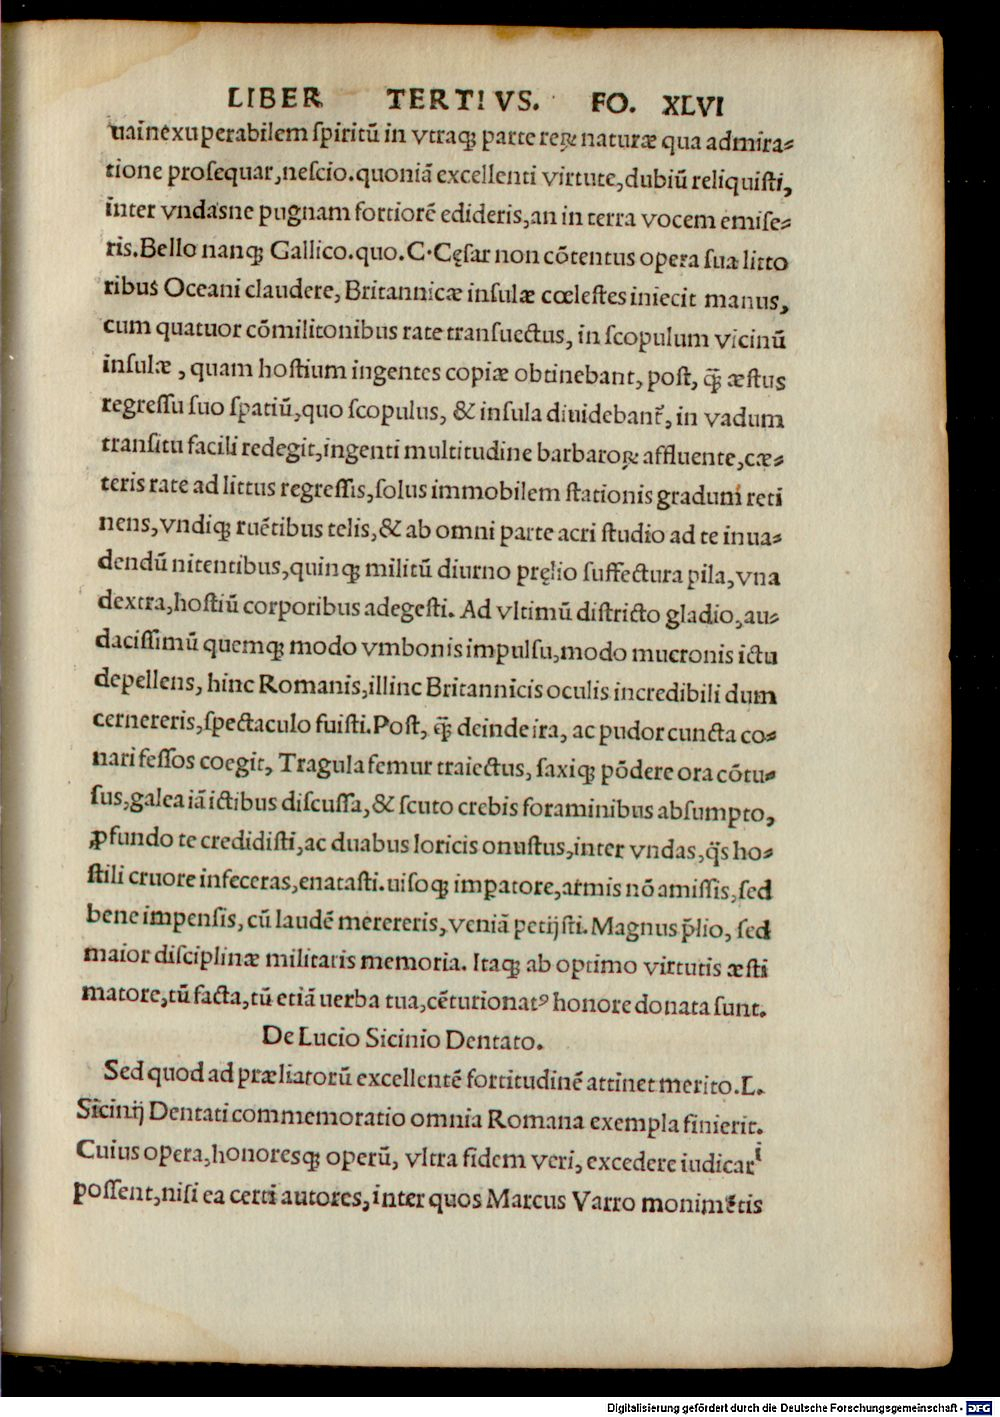 LIBER TERTIVS. FO. XLVI
uainexuperabilem ſpiritū in vtraq̃ parte rerꝝ naturæ qua admira⸗
tione proſequar, neſcio. quoniã excellenti virtute, dubiū reliquiſti,
inter vndasne pugnam fortiorē edideris, an in terra vocem emiſe⸗
ris. Bello nanq̃ Gallico. quo. C. Cęſar non cōtentus opera ſua litto
ribus Oceani claudere, Britannicæ inſulæ cœleſtes iniecit manus,
cum quatuor cōmilitonibus rate tranſuectus, in ſcopulum vicinū
inſulæ, quam hoſtium ingentes copiæ obtinebant, poſt, q̃ æſtus
regreſſu ſuo ſpatiū, quo ſcopulus, & inſula diuidebant᷑, in vadum
tranſitu facili redegit, ingenti multitudine barbaroꝝ affluente, cæ⸗
teris rate ad littus regreſſis, ſolus immobilem ſtationis gradum reti
nens, vndiq̃ ruētibus telis, & ab omni parte acri ſtudio ad te inua⸗
dendū nitentibus, quinq̃ militū diurno pręlio ſuffectura pila, vna
dextra, hoſtiū corporibus adegeſti. Ad vltimū diſtricto gladio, au⸗
daciſſimū quemq̃ modo vmbonis impulſu, modo mucronis ictu
depellens, hinc Romanis, illinc Britannicis oculis incredibili dum
cernereris, ſpectaculo fuiſti. Poſt, q̃ deinde ira, ac pudor cuncta co⸗
nari feſſos coegit, Tragula femur traiectus, ſaxiq̃ pōdere ora cōtu⸗
ſus, galea iã ictibus diſcuſſa, & ſcuto crebis foraminibus abſumpto,
ꝓfundo te credidiſti, ac duabus loricis onuſtus, inter vndas, q̃s ho⸗
ſtili cruore infeceras, enataſti. uiſoq̃ impatore, armis nō amiſſis, ſed
bene impenſis, cū laudē merereris, veniã petijſti. Magnus p̃lio, ſed
maior diſciplinæ militaris memoria. Itaq̃ ab optimo virtutis æſti
matore, tū facta, tū etiã uerba tua, cēturionatꝰ honore donata ſunt.
De Lucio Sicinio Dentato.
Sed quod ad præliatorū excellentē fortitudinē attinet merito. L.
Sicinij Dentati commemoratio omnia Romana exempla finierit.
Cuius opera, honoresq̃ operū, vltra fidem veri, excedere iudicari
poſſent, niſi ea certi autores, inter quos Marcus Varro monimētis
Digitalisierung gefördert durch die Deutsche Forschungsgemeinschaft - DFG